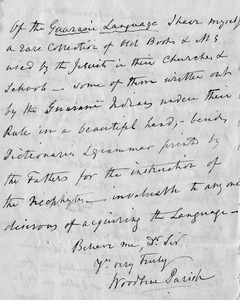 Of the Guarani Language I have myself
a rare collection of Old Books & MS
used by the Jesuits in their Churches &
Schools – some of them written out
by the Guarani Indians under their
Rule in a beautiful hand, – besides
Dictionaries & grammar printed by
the Fathers for the instruction of
the Neophytes – invaluable to any one
desirous of acquiring the Language –
Believe me, Dr Sir
Yrs very truly
Woodbine Parish